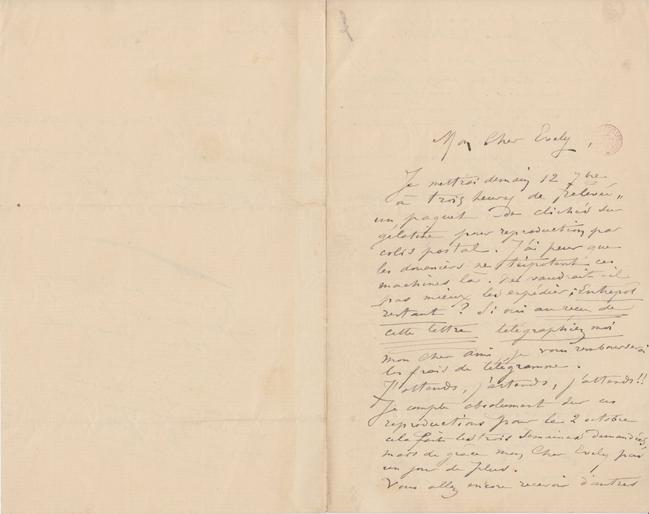 Mon Cher Evely,
Je mettrai demain 12 7bre
à trois heures de "relevée"
un paquet de clichés sur
gélatine pour reproduction par
colis postal. J'ai peur que
les douaniers ne tripotent ces
machines là. Ne vaudrait-il
pas mieux les expédier: Entrepôt
restant? Si oui au reçu de
cette lettre télégraphiez moi
mon cher ami, je vous rembourserai
les frais de télégramme.
J'attends, j'attends, j'attends!!
Je compte absolument sur ces
reproductions pour le 2 octobre
cela fait les trois semaines demandées,
mais de grace mon Cher Evely pas
un jour de plus.
Vous allez encore recevoir d'autres